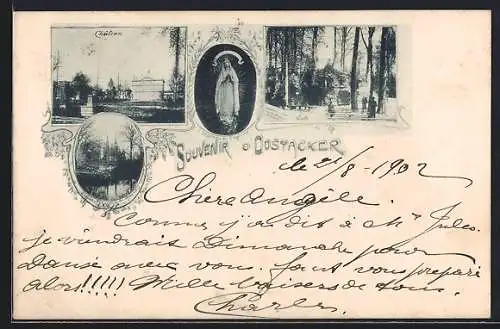 Château
SOUVENIR D'OOSTACKER
le 21/8 - 1902
Chère Angéle.
Comme j'ai dit à Mr Jules.
je viendrais Dimanche pour
danse avec vous. faut vous préparé
alors!!!!! Mille baisers de tous.
Charles.